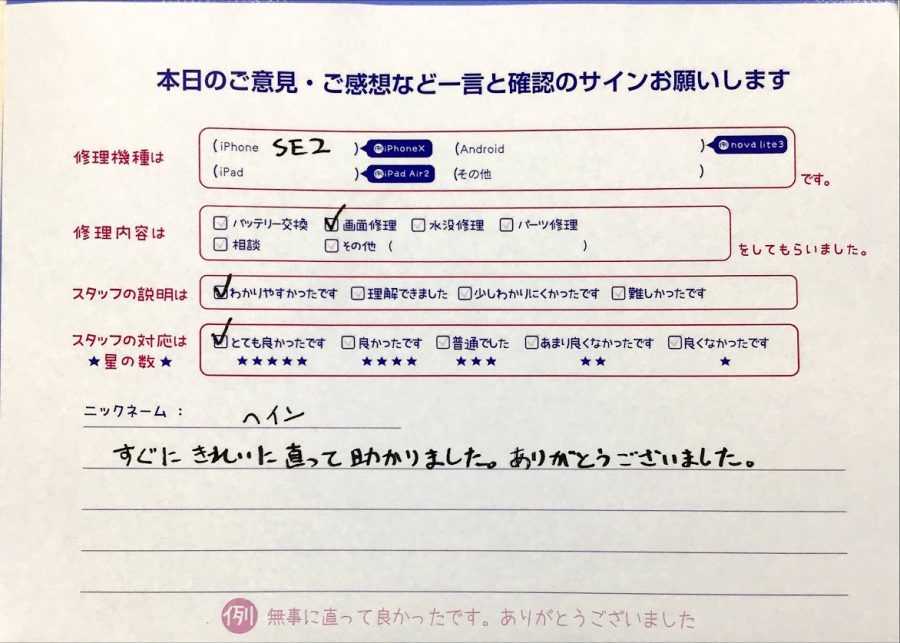 本日のご意見・ご感想など一言と確認のサインお願いします
修理機種は
(iPhone SE2 ) 例 iPhoneX (Android ) 例 nova lite3
(iPad ) 例 iPad Air2 (その他 )
です。
修理内容は
バッテリー交換 ✓画面修理 水没修理 パーツ修理
相談 その他 ( )
をしてもらいました。
スタッフの説明は
✓わかりやすかったです 理解できました 少しわかりにくかったです 難しかったです
スタッフの対応は
★星の数★
✓とても良かったです 良かったです 普通でした あまり良くなかったです 良くなかったです
★★★★★ ★★★★ ★★★ ★★ ★
ニックネーム: ヘイン
すぐに きれいに直って助かりました。ありがとうございました。
例 無事に直って良かったです。ありがとうございました